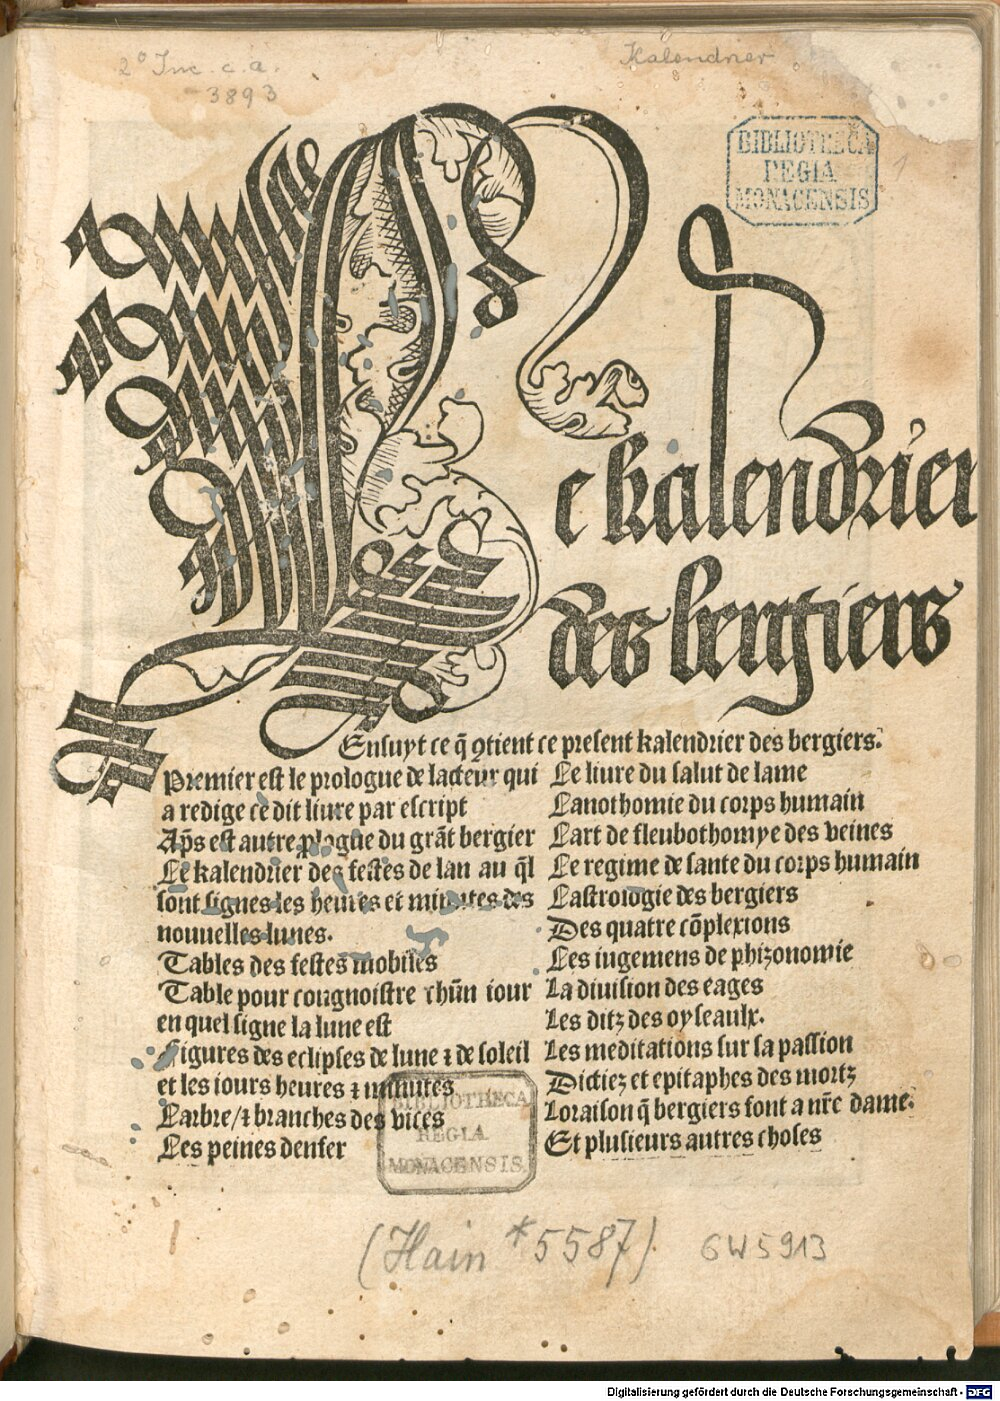 2° Inc. c. a. 3893
Kalendrier
BIBLIOTHECA
REGIA
MONACENSIS
1
Le kalendrier
des bergiers
Ensuyt ce q̃ ꝯtient ce present kalendrier des bergiers.
Premier est le prologue de lacteur qui
a redige ce dit liure par escript
Ap̃s est autre plogue du grãt bergier
Le kalendrier des festes de lan au q̃l
sont signes les heures et minutes des
nouuelles lunes.
Tables des festes mobiles
Table pour congnoistre chũn iour
en quel signe la lune est
Figures des eclipses de lune ⁊ de soleil
et les iours heures ⁊ minutes
Larbre/⁊ branches des vices
Les peines denfer
Le liure du salut de lame
Lanothomie du corps humain
Lart de fleubothomye des veines
Le regime de sante du corps humain
Lastrologie des bergiers
Des quatre cõplexions
Les iugemens de phizonomie
La diuision des eages
Les ditz des oyseaulx.
Les meditations sur la passion
Dictiez et epitaphes des mortz
Loraison q̃ bergiers font a nr̃e dame.
Et plusieurs autres choses
BIBLIOTHECA
REGIA
MONACENSIS
(Hain *5587). GW5913
Digitalisierung gefördert durch die Deutsche Forschungsgemeinschaft - DFG